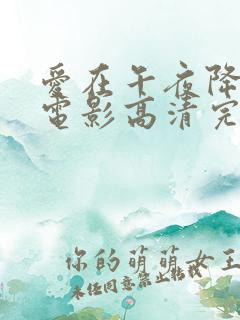 愛在午夜降
電影高清完
你的萌萌女王
未经同意禁止转载